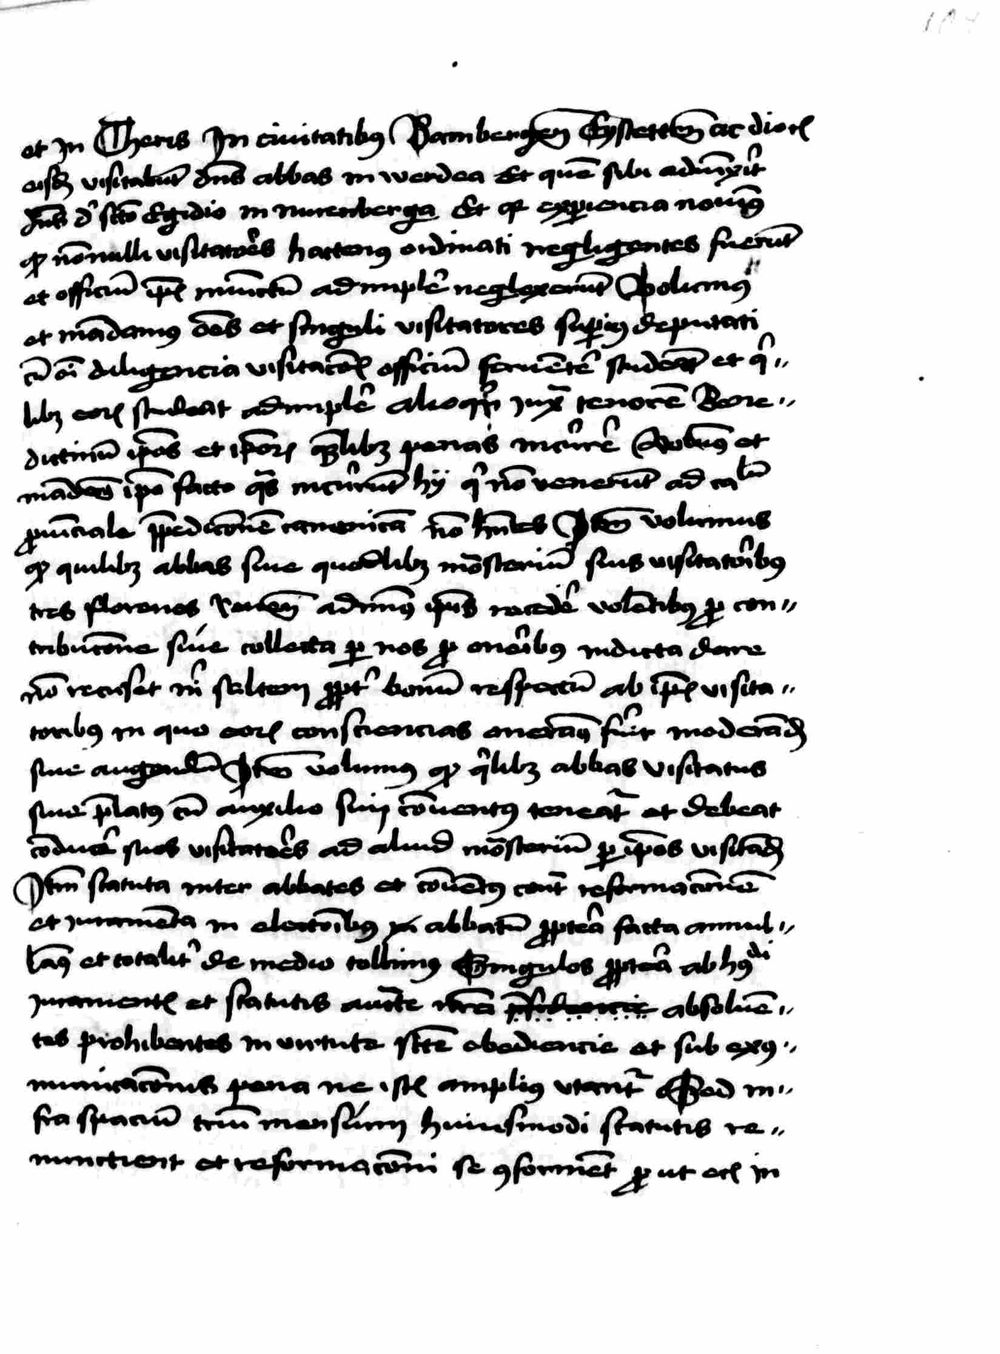 et in Theris In ciuitatibus Bambergen Eystetten ac dioc
eisdem visitabunt dns abbas in werdea Et quem sibi adiunxerit
dns de scto Egidio in nurenberga Et quia experiencia nouimus
quod nonnulli visitatores hactenus ordinati negligentes fuerunt
et officium ipsis iniunctum adimplere neglexerunt Volumus
et mandamus omnes et singuli visitatores superius deputati
cum omni diligencia visitacionis officium feruenter studeant et qui=
libet eorum studeat adimplere alioquin iuxta tenorem Bene=
dictinum ipsos et ipsorum quemlibet penas incurrere Volumus et
mandamus ipso facto quas incurrunt hij qui non venerunt ad caplm
prouinciale impedicionem canonicam non hntes Item volumus
quod quilibet abbas siue quodlibet monsterium suis visitatoribus
tres florenos Renen adminus ipsis recedere volentibus pro con=
tribucione siue collecta per nos pro oneribus indicta dare
non recuset nisi saltem propter bonum respectum ab ipsis visita=
toribus in quo eorum consciencias oneramus fuerit moderand
siue augendum Item volumus quod quilibet abbas visitatus
siue prelatus cum auxilio sui conuentus teneatur et debeat
conducere suos visitatores ad aliud monsterium per ipsos visitand
Item statuta inter abbates et conuentus contra reformacionem
et iuramenta in eleccionibus abbatum propterea facta annul=
lamus et totaliter de medio tollimus Singulos propterea ab husdi
iuramentis et statutis aucte nra presidencie absoluen=
tes prohibentes in virtute scte obediencie et sub excom=
municacionis pena ne istis amplius vtantur Sed in=
fra spacium trium mensium huiusmodi statutis re=
nunctient et reformacioni se conforment pro ut eciam in